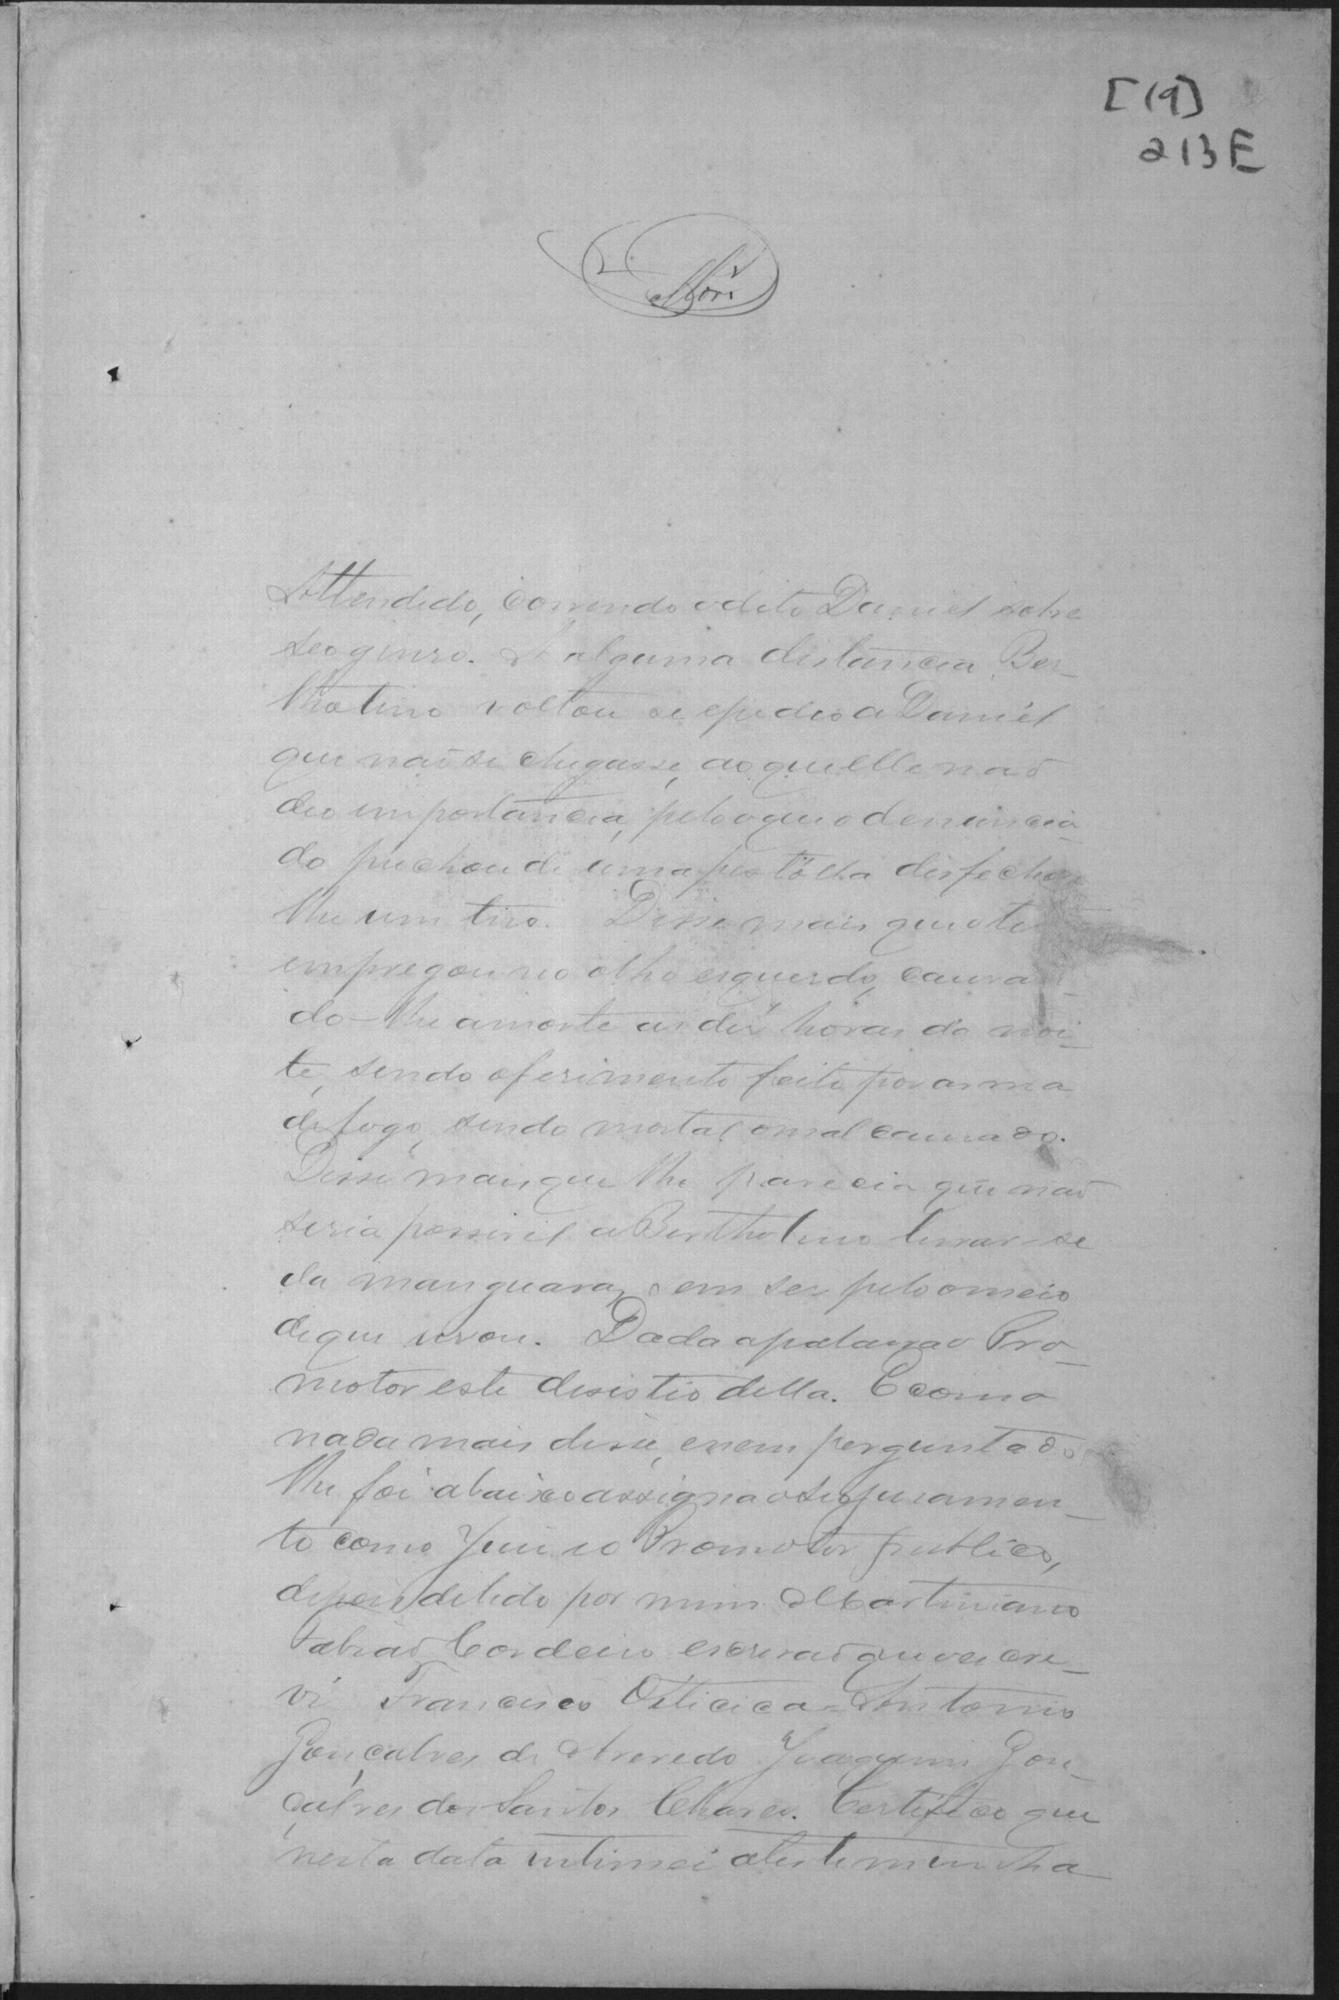 [19]
213E
Attendido, correndo o dito Daniel sobre
seo genro. A alguma distancia Ber-
tholino voltou se e pedio a Daniel
que não se chegasse, ao que elle não
deo importancia, pelo que o denuncia-
do puchou de uma pistolla disfechou
lhe um tiro. Disse mais que o ti
empregou no olho esquerdo, causan-
do-lhe a morte as dez horas da noi-
te, sendo o ferimento feito por arma
de fogo, sendo mortal o mal causado.
Disse mais que lhe parecia que não
seria possivel a Bertholino livrar-se
da manguara, sem ser pelo o meio
de que usou. Dada a palavra o Pro-
motor este desistio della. E como
nada mais disse, e nem perguntado
lhe foi abaixo assigna o seo juramen-
to como Juiz e o Promotor publico,
depois de lido por mim Martiniano
Fabião Cordeiro escrivão que o escre-
vi Francisco Oiticica - Antonio
Gonçalves de Azevedo Joaquim Gon-
çalves dos Santos Chaves. Certifico que
nesta data intimei a testemunha